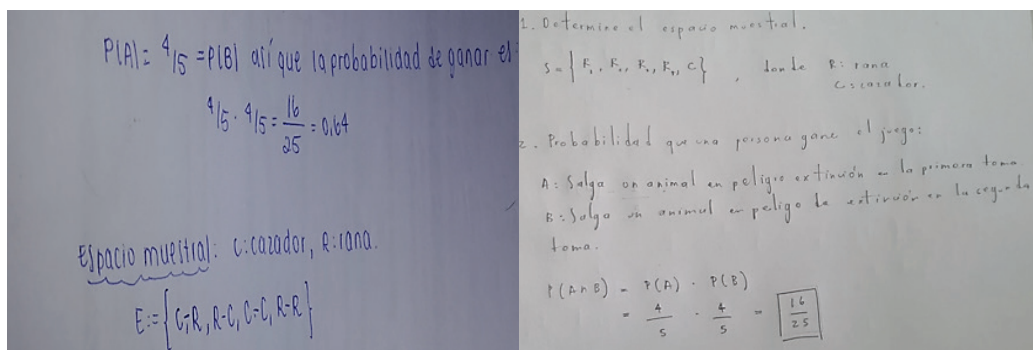 P(A) = 4/5 = P(B) así que la probabilidad de ganar es
4/5 · 4/5 = 16/25 = 0,64
Espacio muestral: C:cazador, R:rana.
E:= {C-R, R-C, C-C, R-R}
1. Determine el espacio muestral.
S = {R₁, R₂, R₃, R₄, C} , donde R: rana
C: cazador.
2. Probabilidad que una persona gane el juego:
A: Salga un animal en peligro extinción en la primera toma.
B: Salga un animal en peligo de extinción en la segunda
toma.
P(A∩B) = P(A) · P(B)
= 4/5 · 4/5 = 16/25